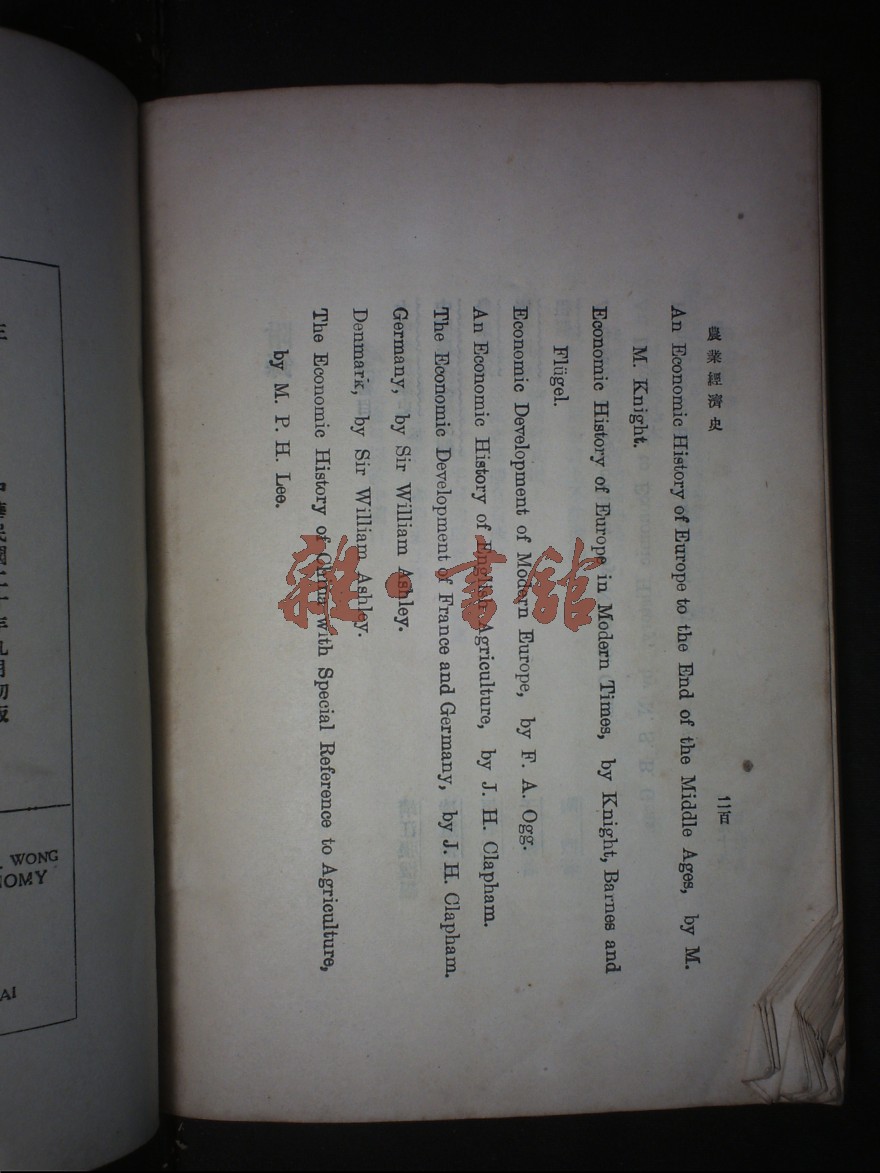 農業經濟史
An Economic History of Europe to the End of the Middle Ages, by M.
M. Knight.
Economic History of Europe in Modern Times, by Knight, Barnes and
Flügel.
Economic Development of Modern Europe, by F. A. Ogg.
An Economic History of English Agriculture, by J. H. Clapham.
The Economic Development of France and Germany, by J. H. Clapham.
Germany, by Sir William Ashley.
Denmark, by Sir William Ashley.
The Economic History of China with Special Reference to Agriculture,
by M. P. H. Lee.
雜·書館
WONG
OMY
AI